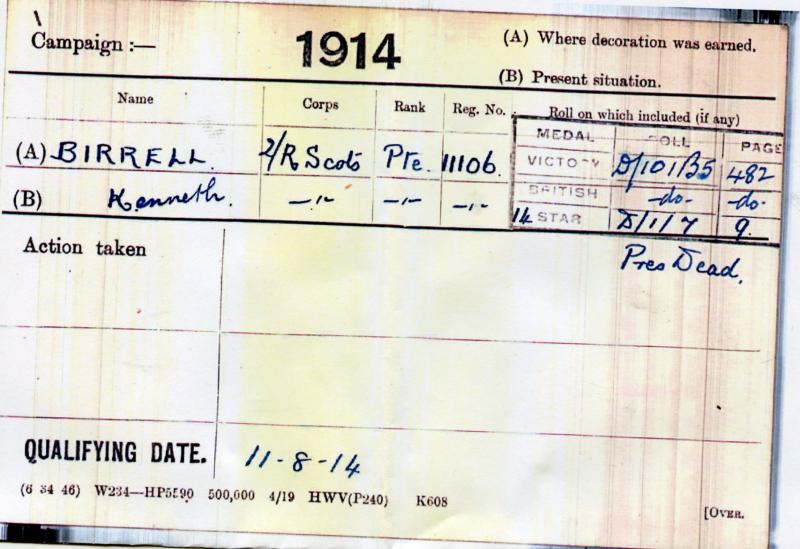 Campaign :— 1914 (A) Where decoration was earned.
(B) Present situation.
Name Corps Rank Reg. No. Roll on which included (if any)
MEDAL ROLL PAGE
(A) BIRRELL. 2/R Scots Pte. 11106. VICTORY D/101/B5 482
(B) Kenneth. —"— —"— —"— BRITISH -do- -do-
14 STAR D/1/7 9.
Action taken Pres Dead.
QUALIFYING DATE. 11-8-14
(6 34 46) W234—HP5590 500,000 4/19 HWV(P240) K608
[OVER.